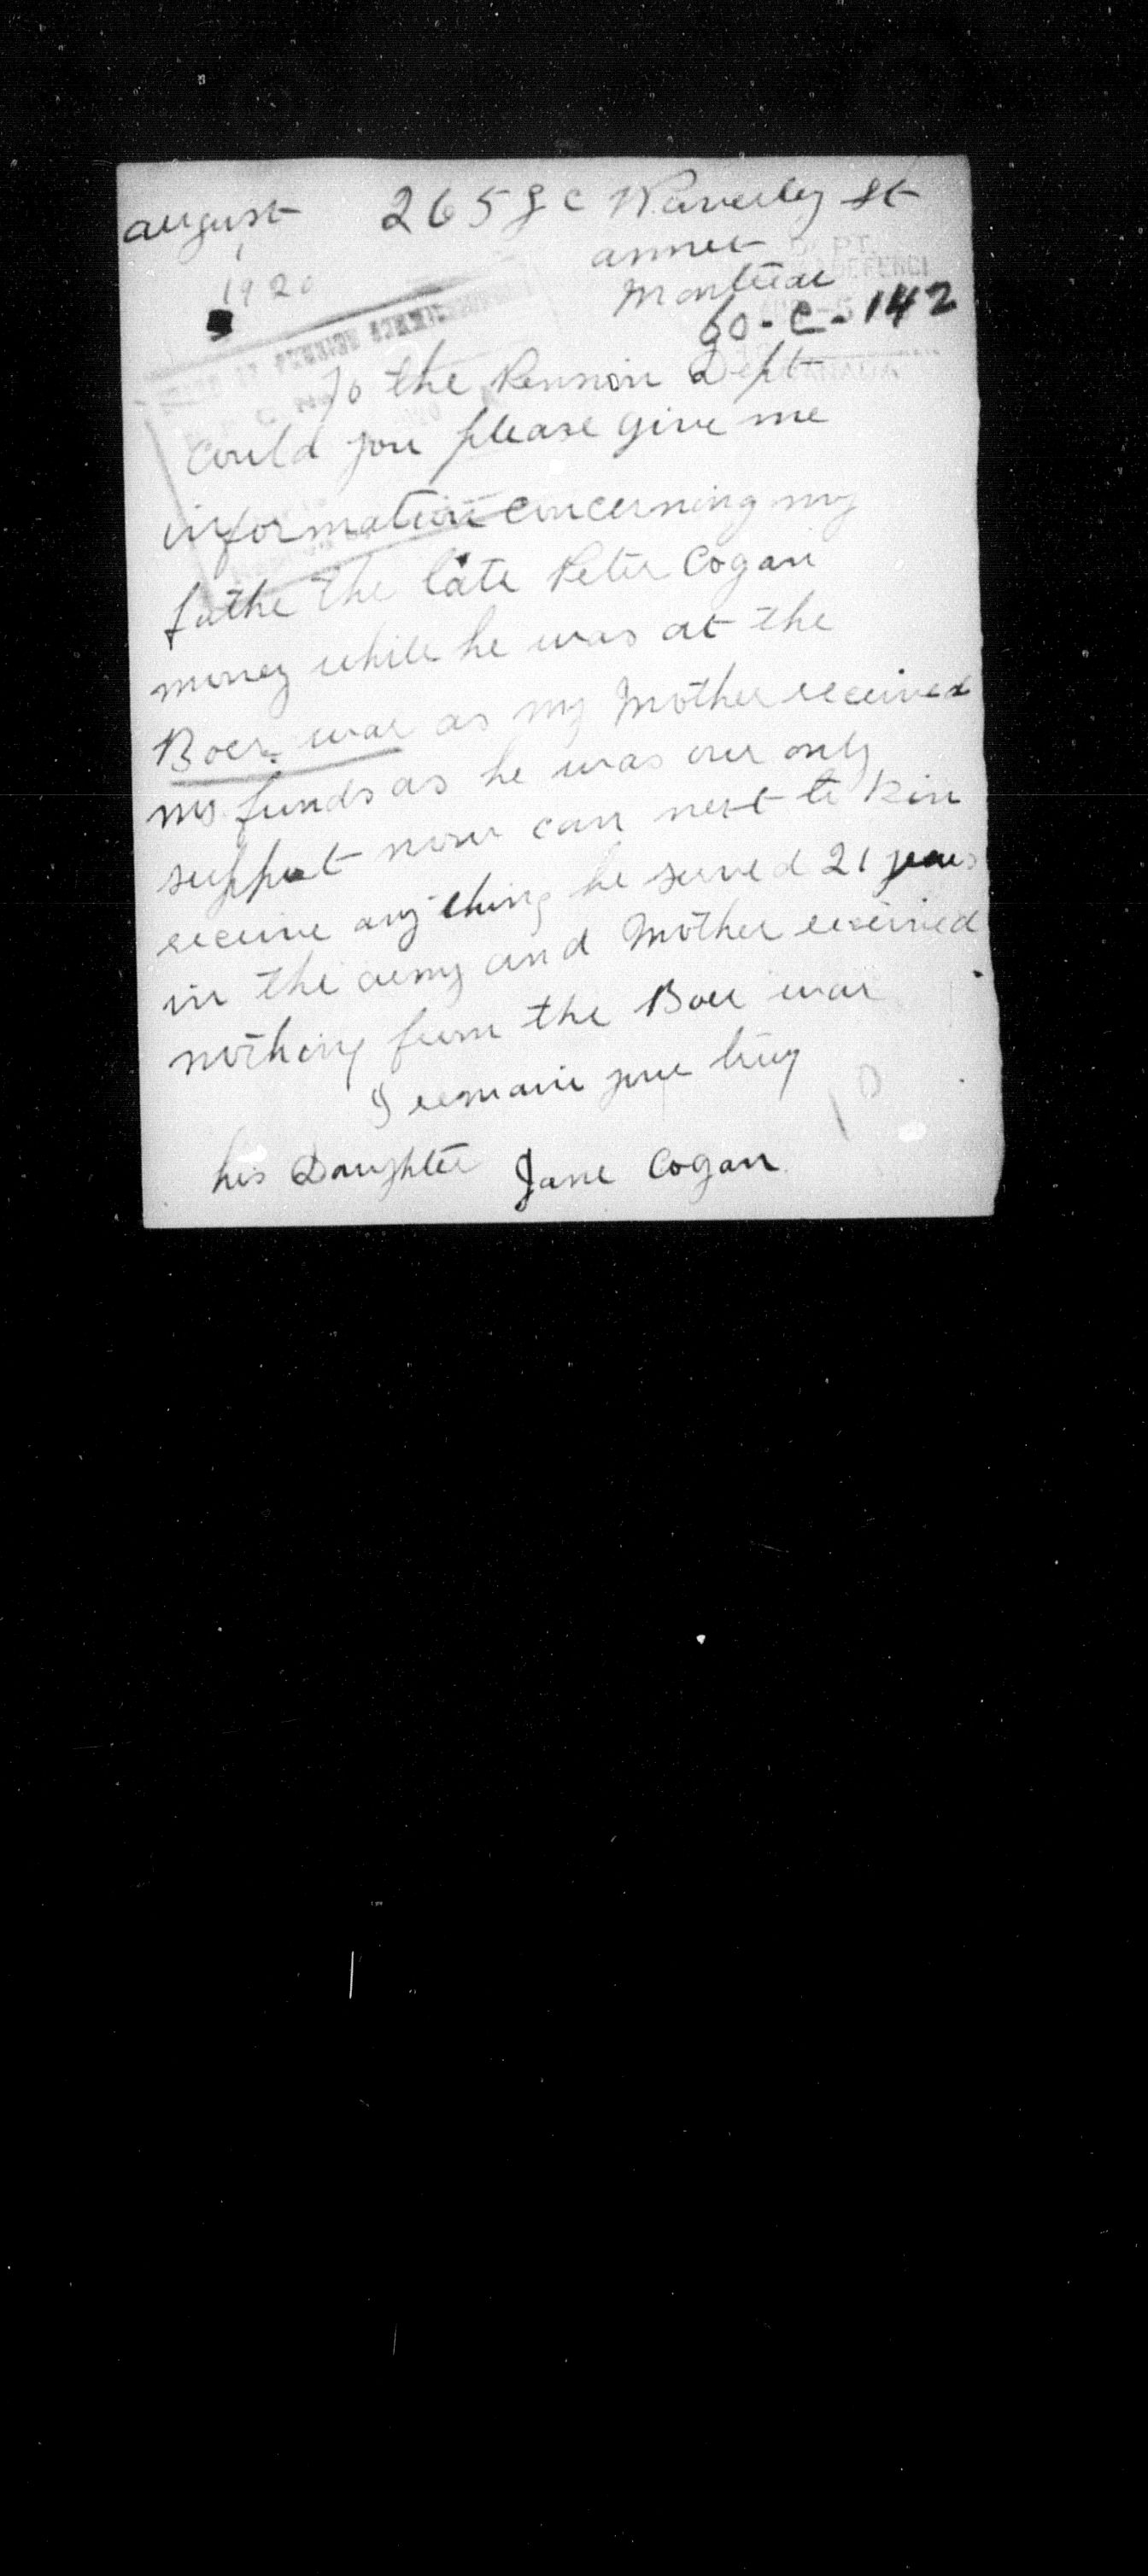 august 265 g c Waverley St
1
1920
annex
DEPT.
DEFENCE
Montreal
60-C-142
To the Pension Dept
could you please give me
information concerning my
fathe the late Peter Cogan
money while he was at the
Boer war as my Mother received
no funds as he was our only
support now can next to kin
receive anything he served 21 years
in the army and Mother received
nothing from the Boer war
I remain your truy
his Daughter Jane Cogan